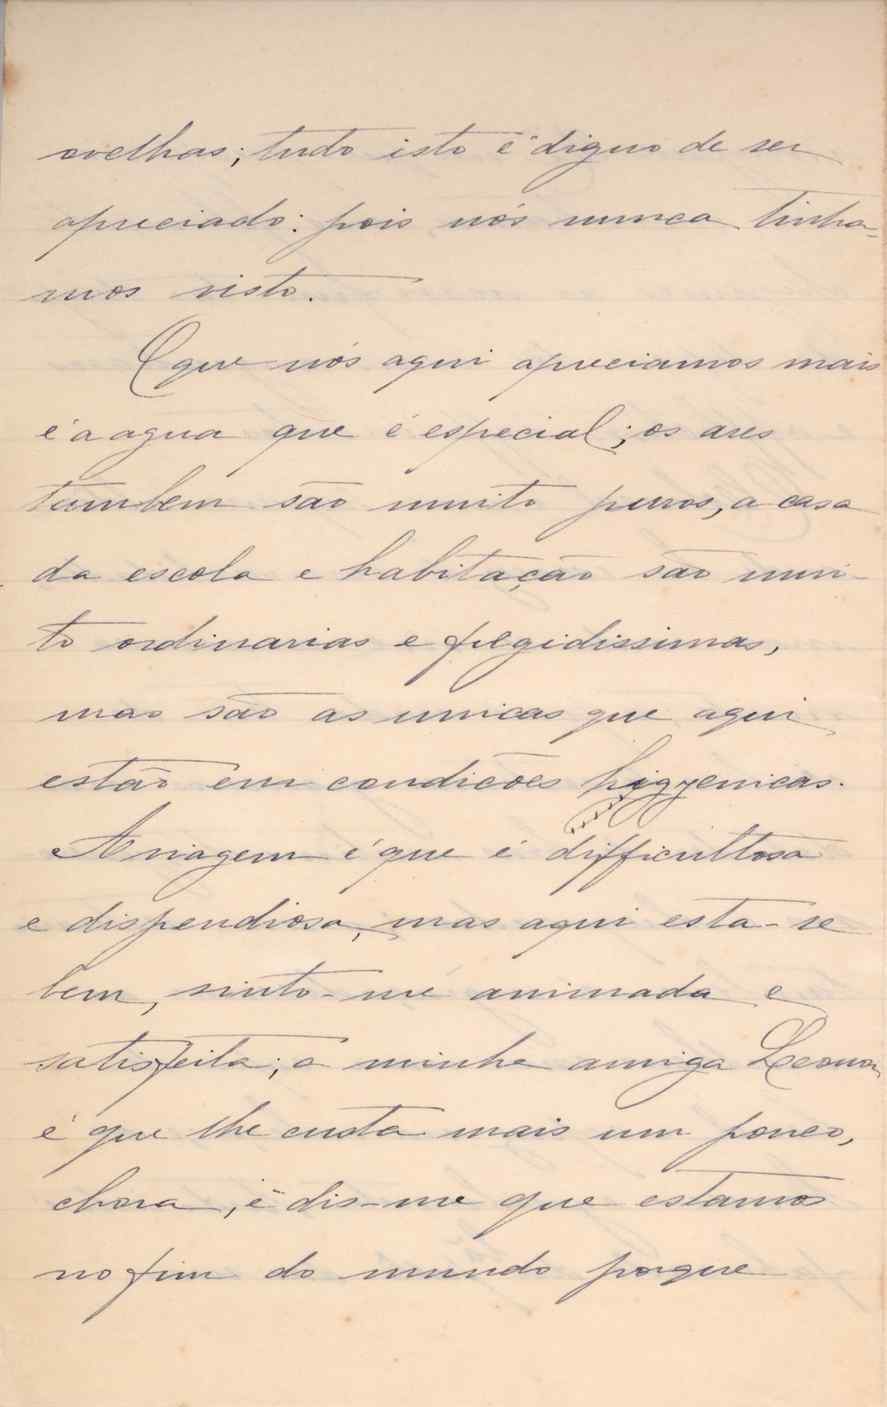 ovelhas; tudo isto é digno de ser
apreciado: pois nós nunca tinha-
mos visto.
O que nós aqui apreciamos mais
é a agua que é especial; os ares
tambem são muito puros, a casa
da escola e habitação são mui-
to ordinarias e fregidissimas,
mas são as unicas que aqui
estão em condições higyenicas.
A viagem é que é difficultosa
e dispendiosa, mas aqui esta-se
bem, sinto-me animada e
satisfeita; a minha amiga Leonor
é que lhe custa mais um pouco,
chora, é dis-me que estamos
no fim do mundo porque